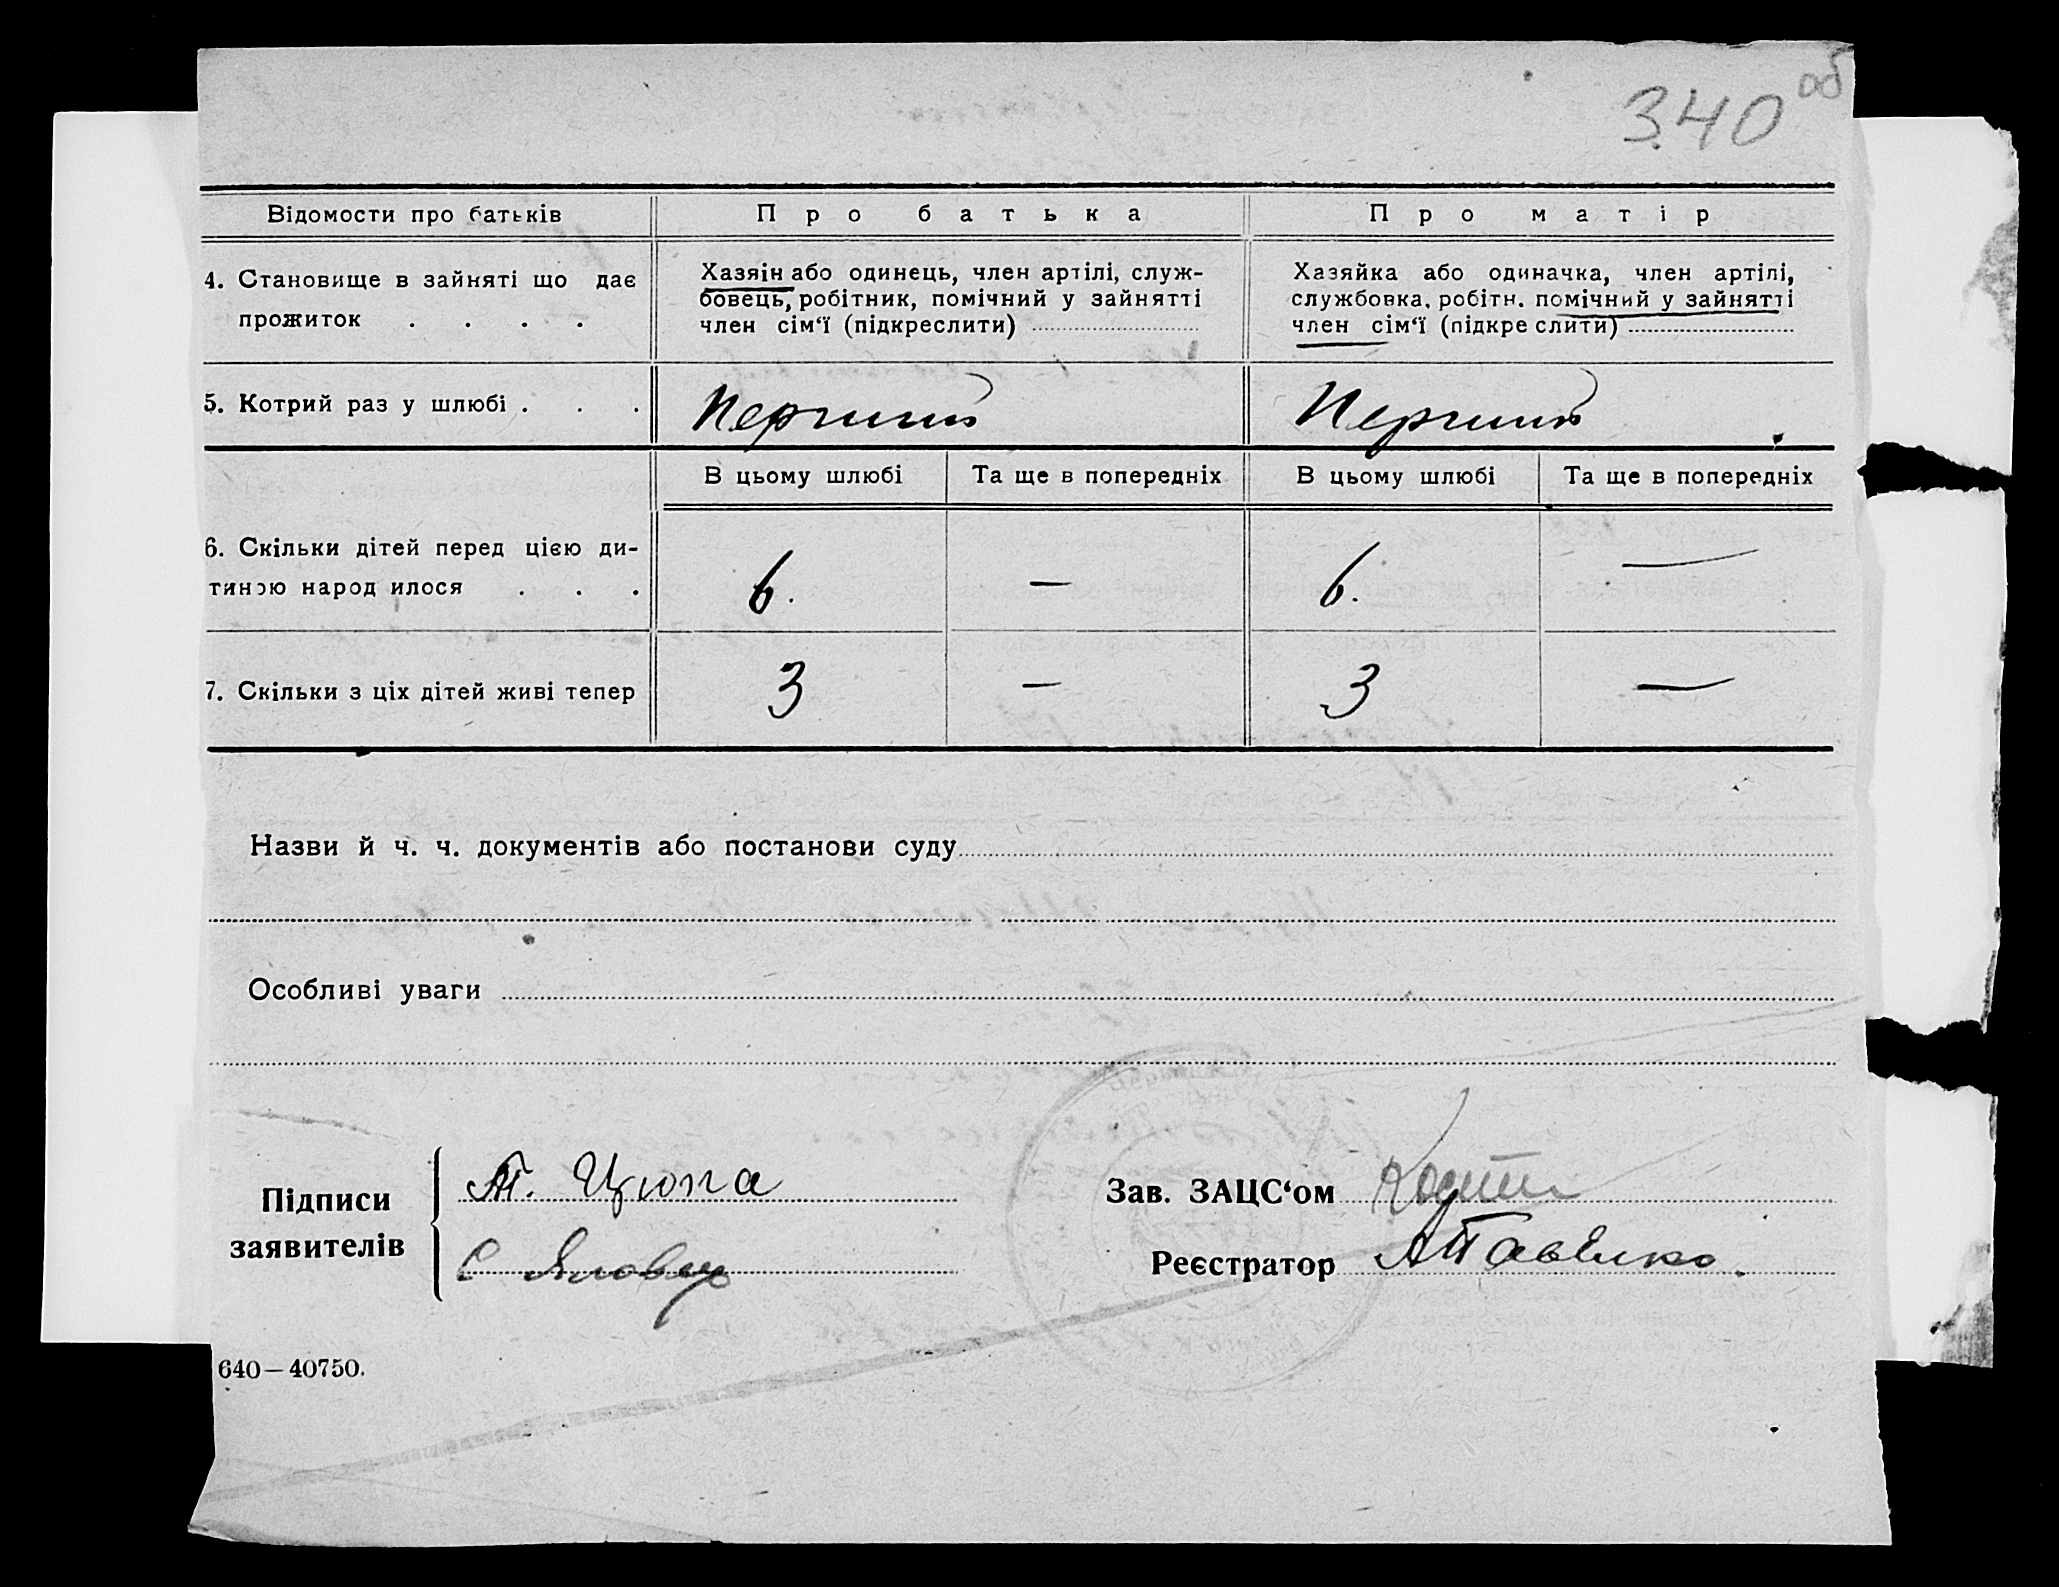 340 об
Відомости про батьків
Про батька
Про матір
4. Становище в зайняті що дає
прожиток . . . .
Хазяін або одинець, член артілі, служ-
бовець, робітник, помічний у зайнятті
член сім‘ї (підкреслити)
Хазяйка або одиначка, член артілі,
службовка. робітн. помічний у зайнятті
член сім‘ї (підкре слити)
5. Котрий раз у шлюбі . . .
Перший
Перший
В цьому шлюбі
Та ще в попередніх
В цьому шлюбі
Та ще в попередніх
6. Скільки дітей перед цією ди-
тиною народ илося . . .
6.
—
6.
—
7. Скільки з ціх дітей живі тепер
3
—
3
—
Назви й ч. ч. документів або постанови суду
Особливі уваги
Підписи
заявителів
Т. Цюпа
С Яловец
Зав. ЗАЦС‘ом
Реєстратор
640—40750.